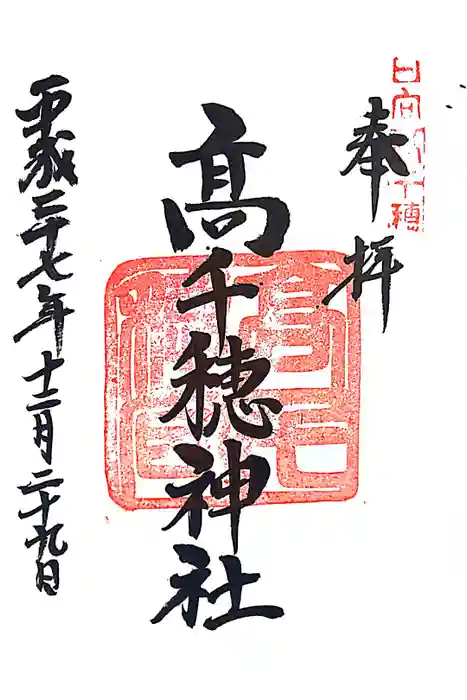 奉拝
日向高千穂
髙千穂神社
平成二十七年十二月二十九日